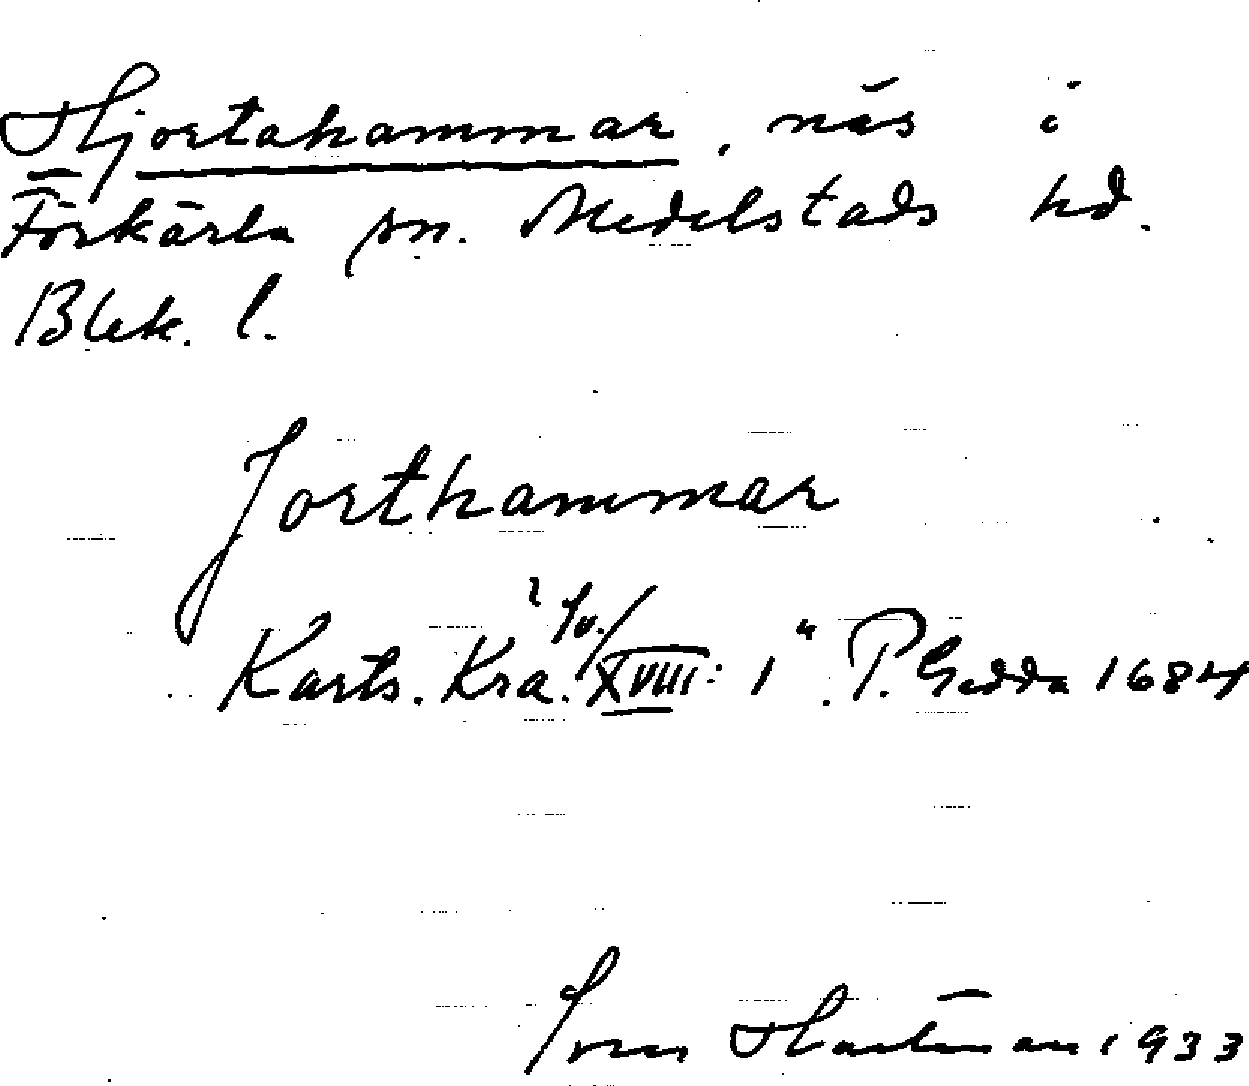 Hjortahammar, näs i
Förkärla sn. Medelstads hd.
Blek. l.
Jorthammar
Karts. Kra. XVIII: 1". P. Gedda 1684
Hartman 1933